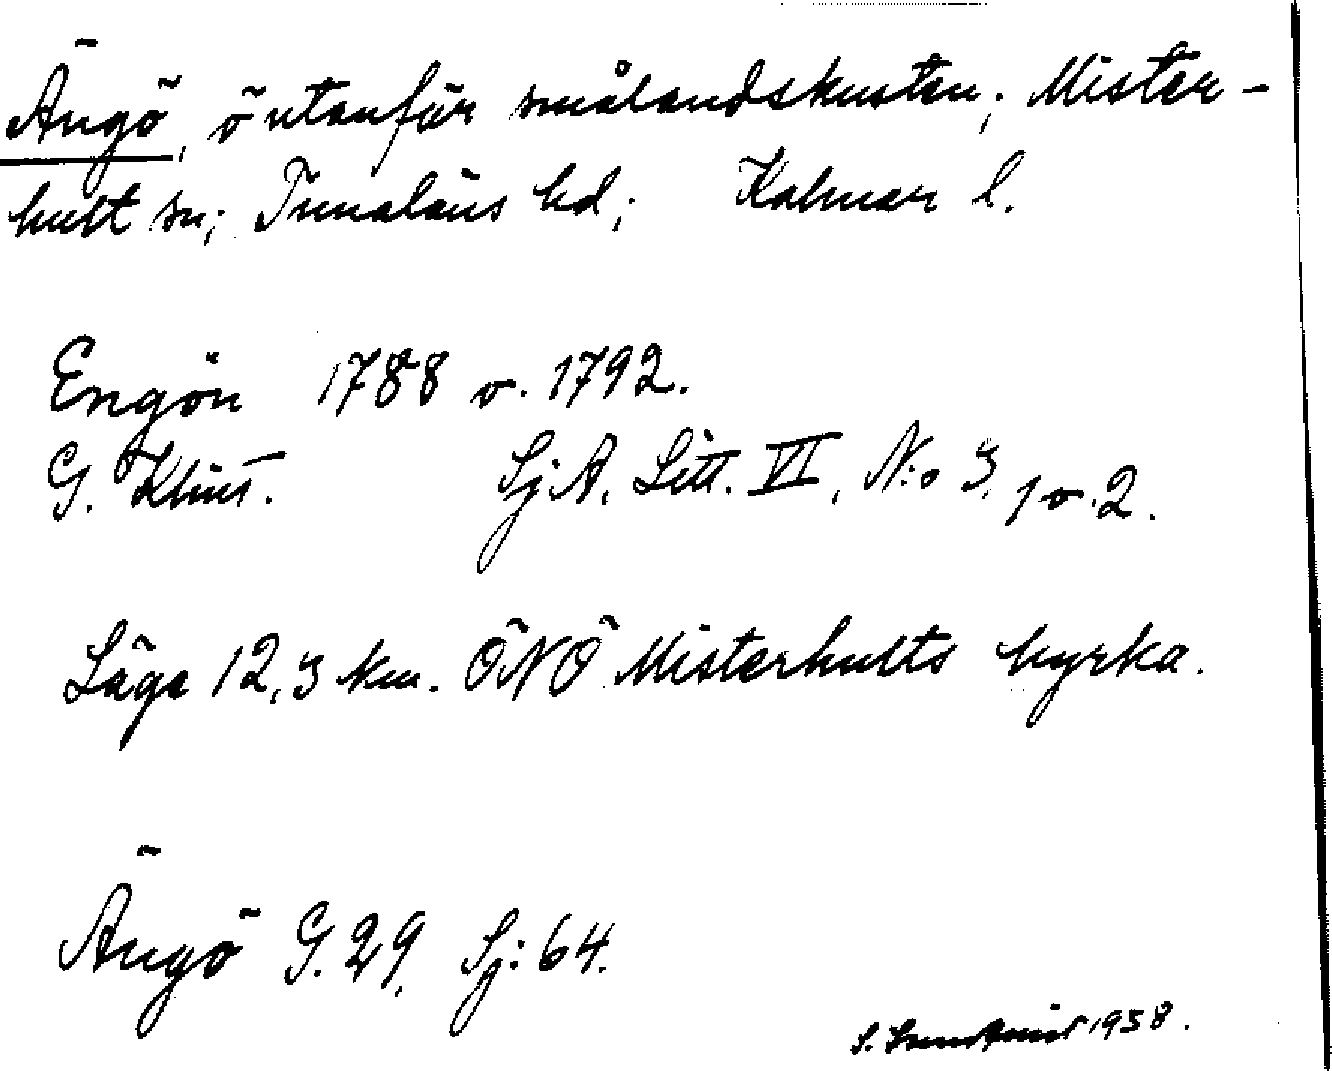 Ängö, ö utanför smålandskusten; Mister-
hult sn; Tunaläns hd; Kalmar l.
Engön 1788 o. 1792.
G. Klint. Sj A. Litt. VI, N:o 3, 1 o. 2.
Läge 12,3 km. ÖNÖ Misterhults kyrka.
Ängö G. 29, Sj: 64.
S. 1938.